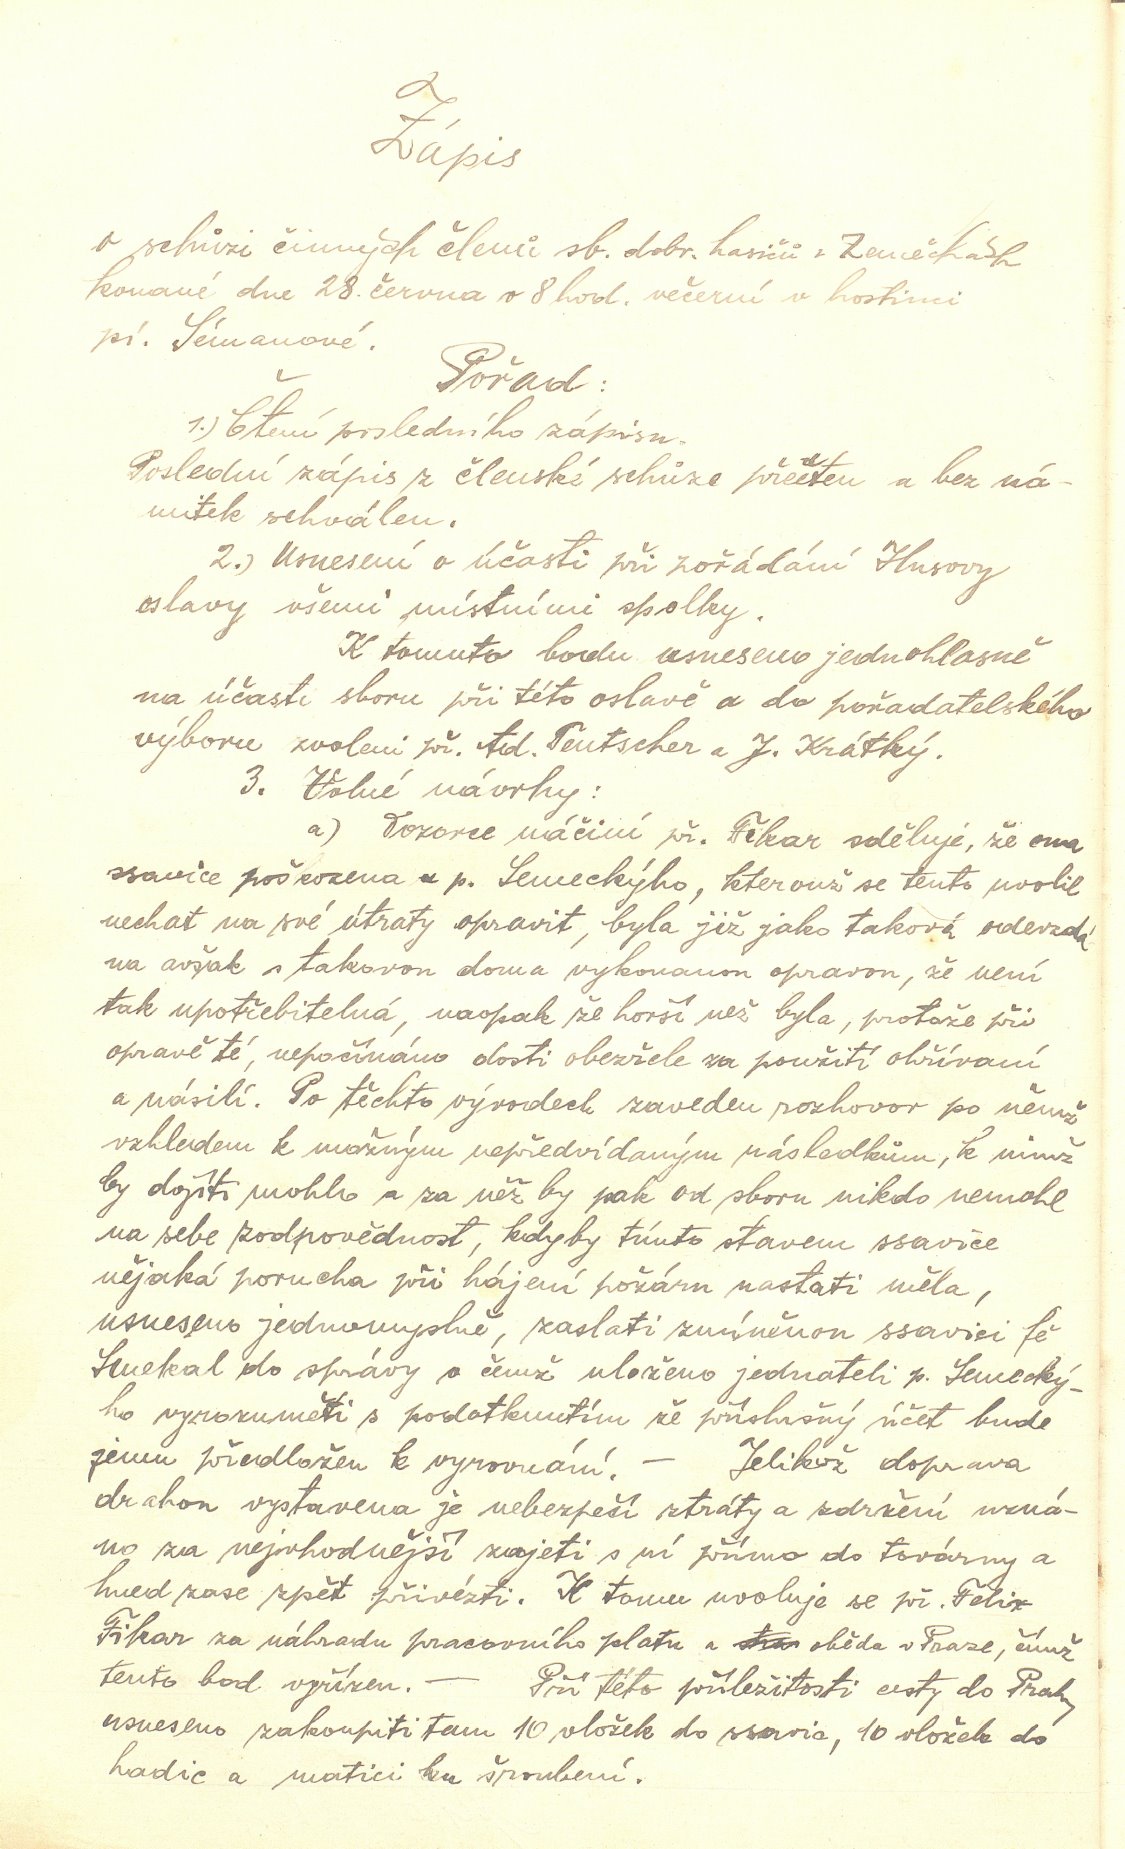 Zápis
o schůzi činných členů sb. dobr. hasičů v Zeměchách
konané dne 28. června o 8 hod. večerní v hostinci
pí. Sémanové.
Pořad:
1.) Čtení posledního zápisu.
Poslední zápis z členské schůze přečten a bez ná-
mitek schválen.
2.) Usnesení o účasti při pořádání Husovy
oslavy všemi místními spolky.
K tomuto bodu usneseno jednohlasně
na účasti sboru při této oslavě a do pořadatelského
výboru zvoleni př. Ad. Teutscher a J. Krátký.
3. Volné návrhy:
a) Dozorce náčiní př. Fikar sděluje, že ona
ssavice poškozena u p. Semeckýho, kterouž se tento uvolil
nechat na své útraty opravit, byla již jako taková odevzdá
na avšak s takovou doma vykonanou opravou, že není
tak upotřebitelná, naopak že horší než byla, protože při
opravě té, nepočínáno dosti obezřele za použití ohřívaní
a násilí. Po těchto vývodech zaveden rozhovor po němž
vzhledem k možným nepředvídaným následkům, k nimž
by dojíti mohlo a za něž by pak od sboru nikdo nemohl
na sebe zodpovědnost, kdyby tímto stavem ssavice
nějaká porucha při hájení požáru nastati měla,
usneseno jednomyslně, zaslati zmíněnou ssavici fě
Smekal do správy o čemž uloženo jednateli p. Semecký-
ho vyrozuměti s podotknutím že příslušný účet bude
jemu předložen k vyrovnání. — Jelikož doprava
drahou vystavena je nebezpečí ztráty a zdržení uzná-
no za nejvhodnější zajeti s ní přímo do továrny a
hned zase zpět přivézti. K tomu uvoluje se př. Felix
Fikar za náhradu pracovního platu a oběda v Praze, čímž
tento bod vyřízen. — Při této příležitosti cesty do Prahy
usneseno zakoupiti tam 10 vložek do ssavic, 10 vložek do
hadic a matici ku šroubení.